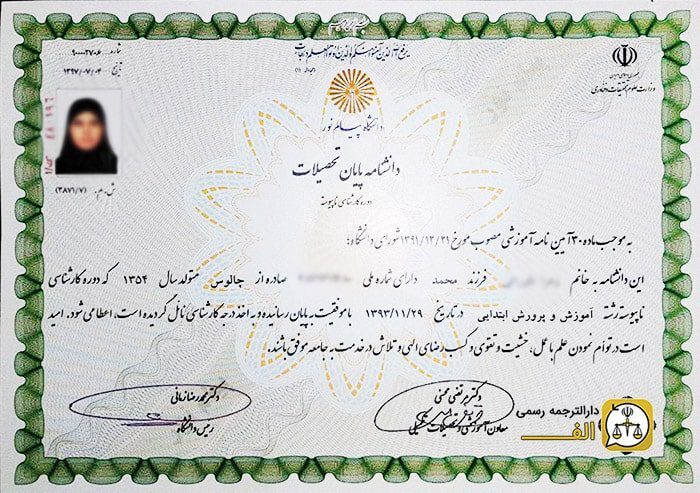 یرفع الله الذین آمنوا منکم والذین اوتوا العلم درجات
شماره: ۹۰۰۰۲۷۰۶
تاریخ: ۱۳۹۷/۰۷/۰۴
جمهوری اسلامی ایران
وزارت علوم تحقیقات و فناوری
دانشگاه پیام نور
دانشنامه پایان تحصیلات
دوره کارشناسی ناپیوسته
ش.م.م: (۳۸۷۱/۷)
به موجب ماده ۳۰ آیین نامه آموزشی مصوب مورخ ۱۳۹۱/۱۲/۲۱ شورای دانشگاه؛
این دانشنامه به خانم فرزند محمد دارای شماره ملی صادره از جالوس متولد سال ۱۳۵۴ که دوره کارشناسی
ناپیوسته رشته آموزش و پرورش ابتدایی در تاریخ ۱۳۹۳/۱۱/۲۹ با موفقیت به پایان رسانیده و به اخذ درجه کارشناسی نائل گردیده است، اعطا می شود. امید
است در توأم نمودن علم با عمل، خشیت و تقوی و کسب رضای الهی و تلاش در خدمت به جامعه موفق باشند.
دکتر مرتضی محسنی
معاون آموزشی و تحصیلات تکمیلی
دکتر محمدرضا زمانی
رییس دانشگاه
دارالترجمه رسمی
الف